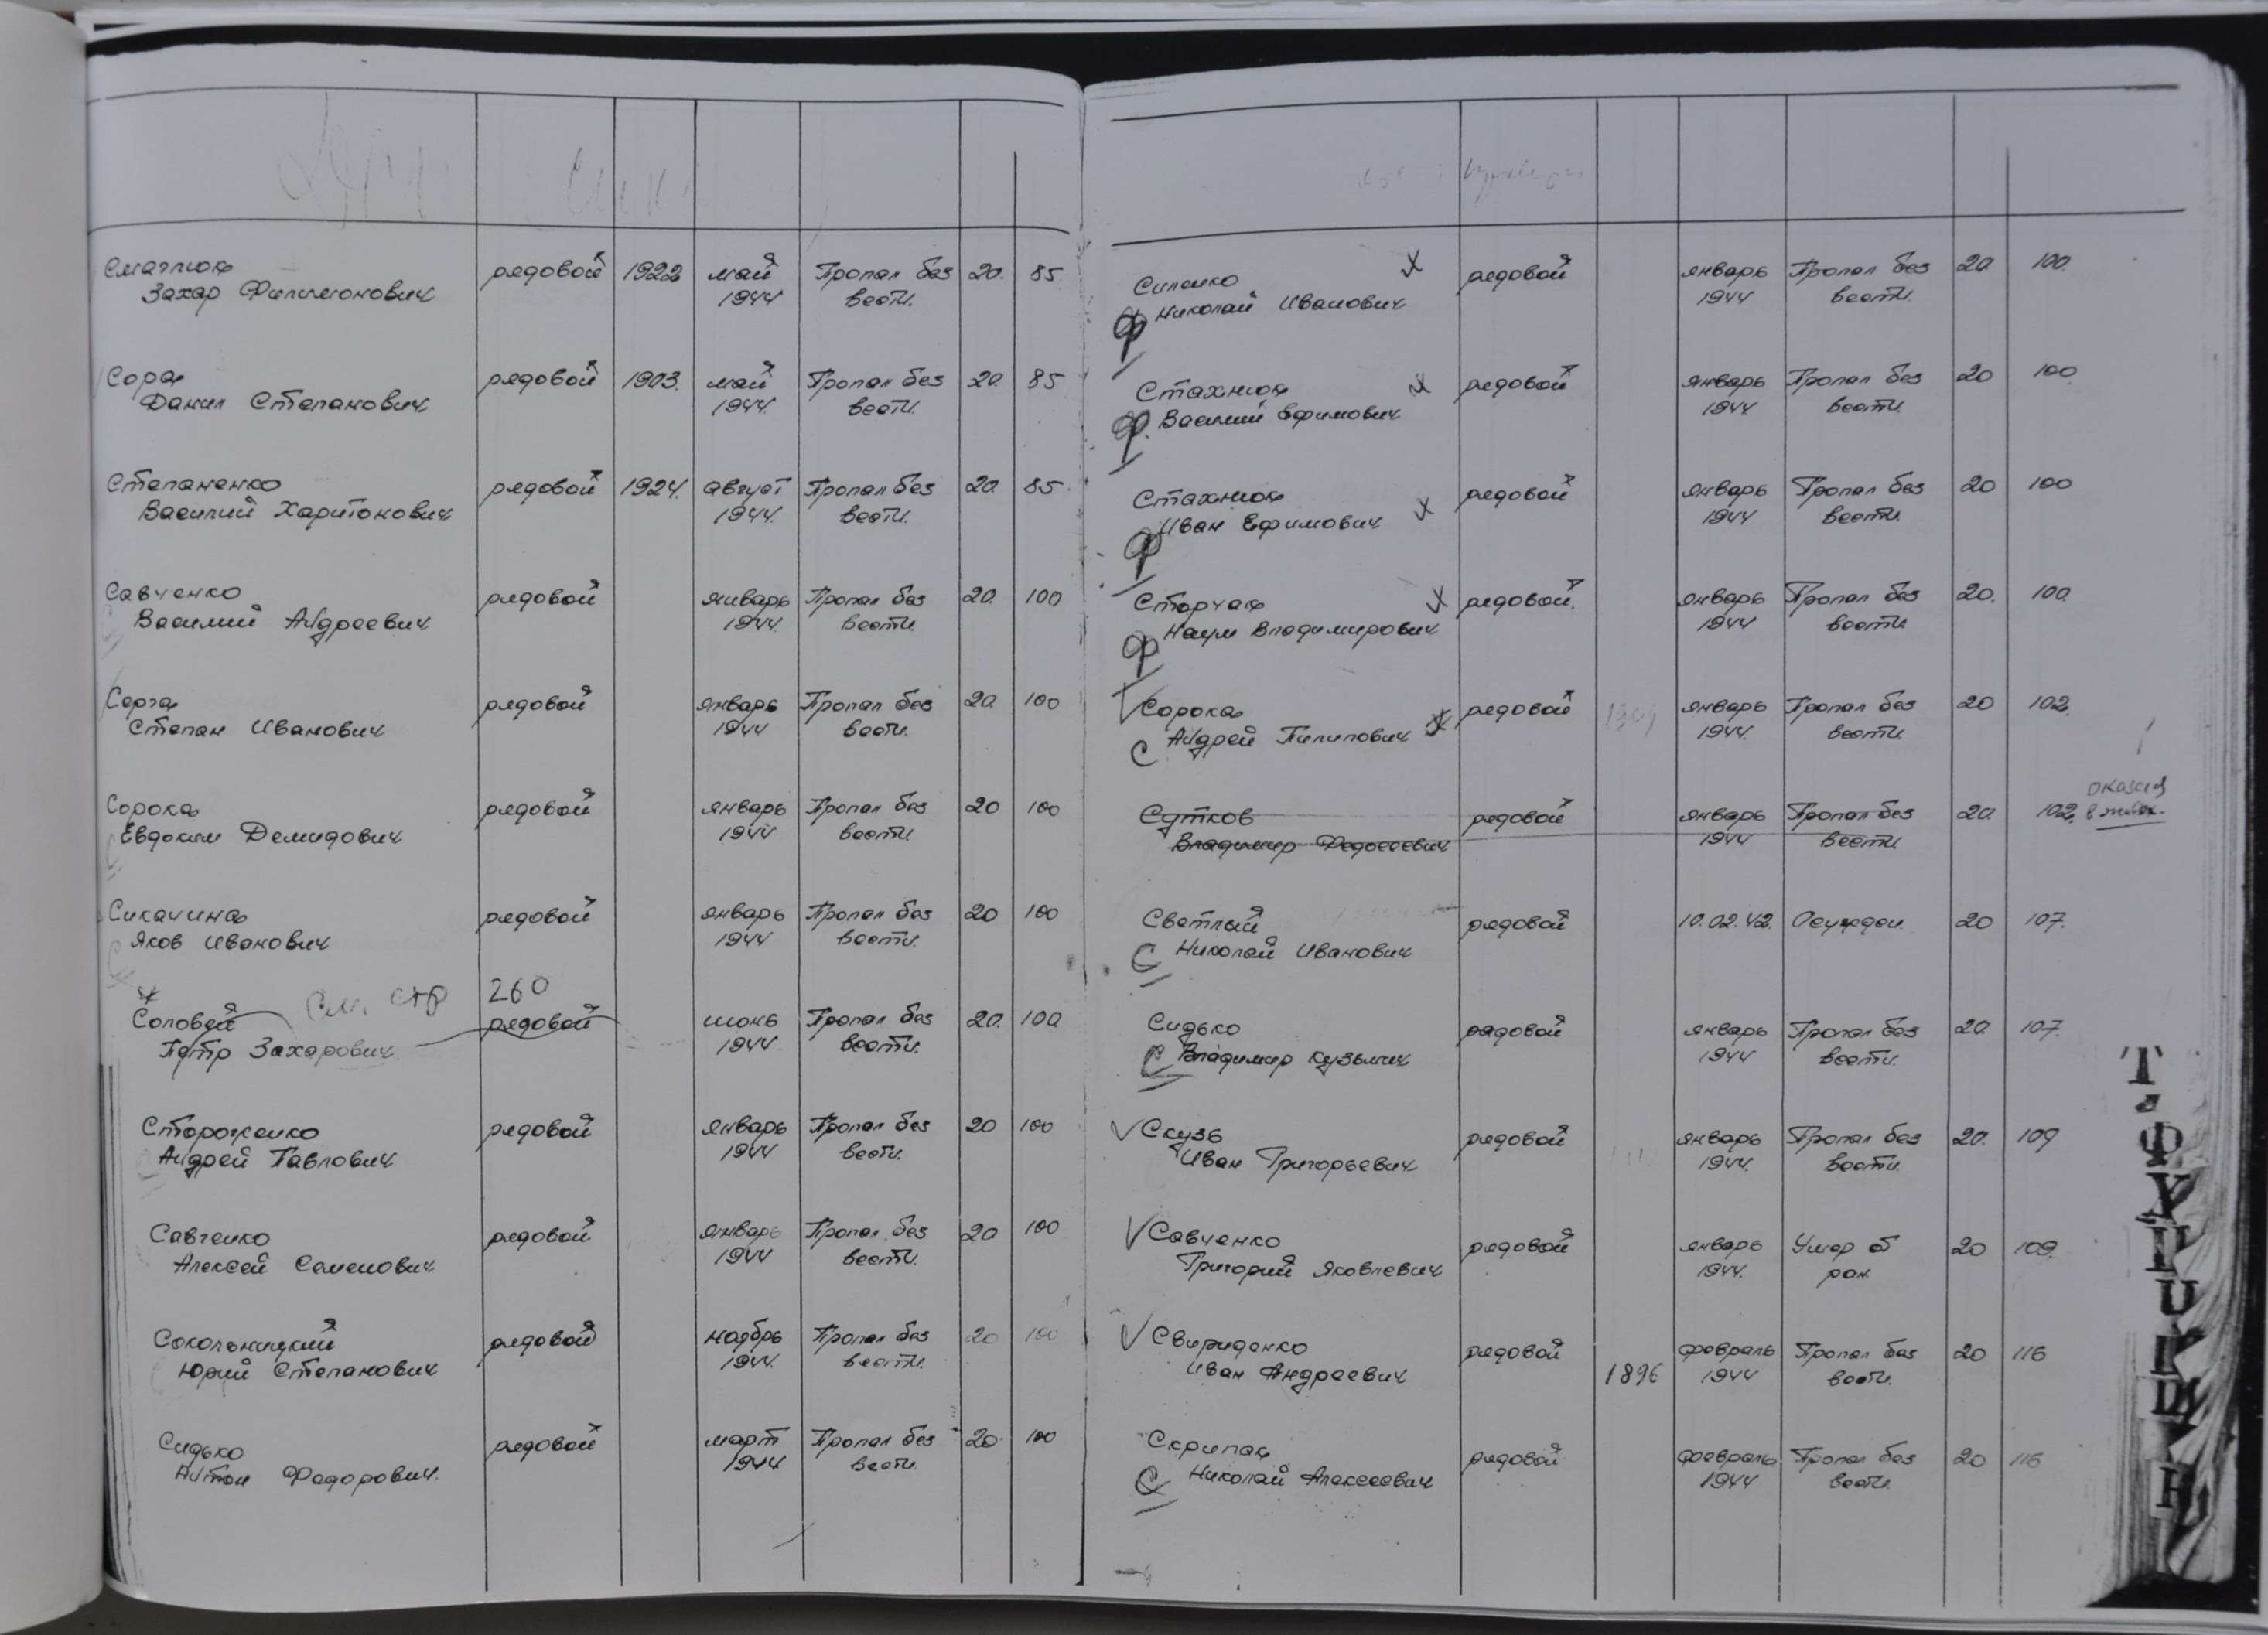 Смаглюк рядовой 1922 май Пропал без 20. 85
Захар Филимонович 1944 вести.
Сора рядовой 1903. май Пропал без 20. 85
Данил Степанович 1944. вести.
Степаненко рядовой 1924. август Пропал без 20. 85
Василий Харитонович 1944. вести.
Савченко рядовой январь Пропал без 20. 100
Василий Андреевич 1944. вести.
Серга рядовой январь Пропал без 20. 100
Степан Иванович 1944 вести.
Сорока рядовой январь Пропал без 20 100
Евдоким Демидович 1944 вести.
Сикачина рядовой январь Пропал без 20 100
Яков Иванович 1944 вести.
См. стр 260
Соловей рядовой июнь Пропал без 20. 100
Петр Захарович 1944 вести.
Стороженко рядовой январь Пропал без 20 100
Андрей Павлович 1944 вести.
Савченко рядовой январь Пропал без 20 100
Алексей Семенович 1944 вести.
Сокольницкий рядовой ноябрь Пропал без 20 100
Юрий Степанович 1944. вести.
Сидько рядовой март Пропал без 20. 100
Антон Федорович. 1944 вести.
Силенко х рядовой январь Пропал без 20 100.
ф Николай Иванович 1944 вести.
Стахнюк х рядовой январь Пропал без 20 100
ф. Василий Ефимович 1944 вести.
Стахнюк х рядовой январь Пропал без 20 100
ф Иван Ефимович 1944 вести.
Сторчак х рядовой. январь Пропал без 20. 100.
ф Наум Владимирович 1944 вести
Сорока х рядовой январь Пропал без 20 102.
С Андрей Пилипович 1944. вести.
Сутков рядовой январь Пропал без 20. 102. оказался
Владимир Федосеевич 1944 вести. в живых.
Светлый рядовой 10.02.42. Осужден. 20 107.
С Николай Иванович
Сидько рядовой январь Пропал без 20. 107.
С Владимир Кузьмич 1944 вести.
Скузь рядовой январь Пропал без 20. 109
Иван Григорьевич 1944. вести.
Савченко рядовой январь Умер от 20 109.
Григорий Яковлевич 1944. ран.
Свириденко рядовой февраль Пропал без 20 116
Иван Андреевич 1896 1944 вести.
Скрипак рядовой февраль Пропал без 20 116
С Николай Алексеевич 1944 вести.
Т
Ф
Х
Ц